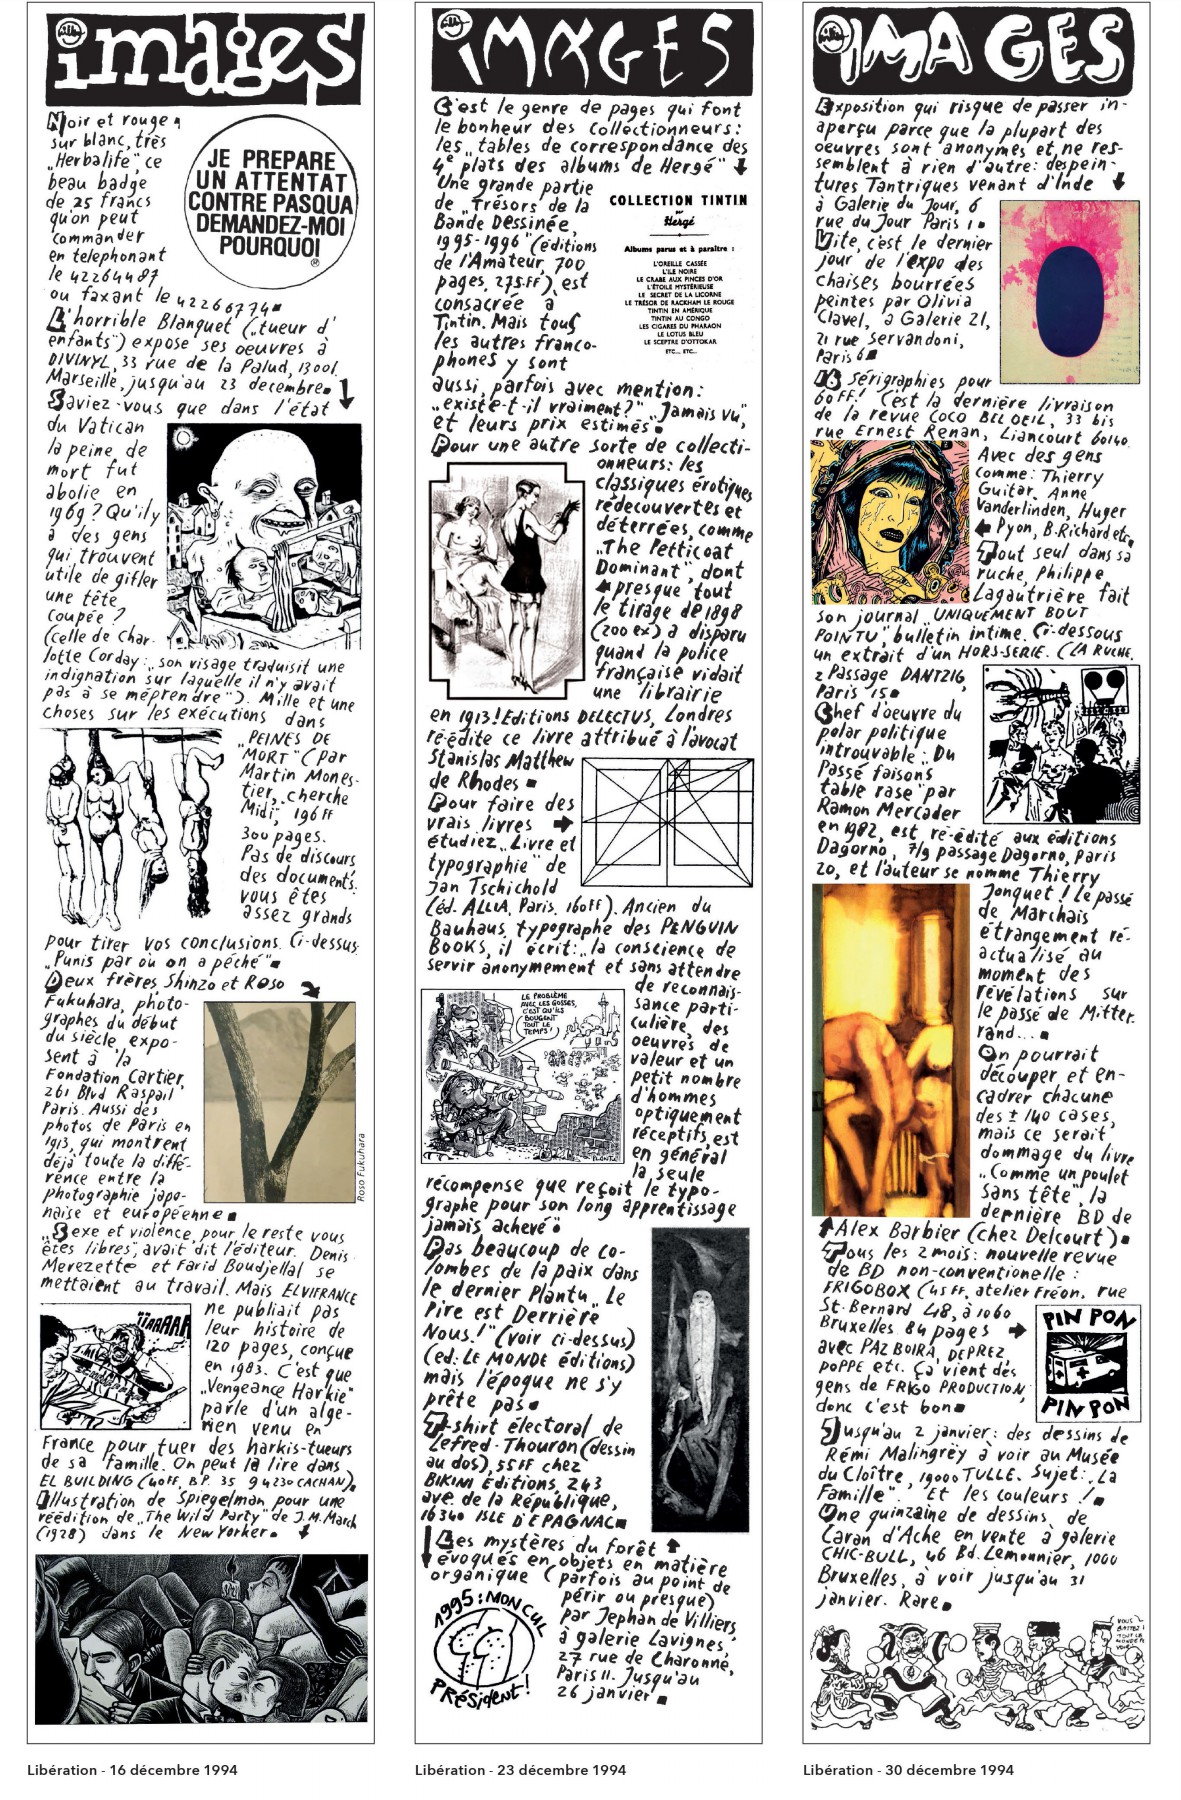 images
Noir et rouge
sur blanc, très
„Herbalife", ce
beau badge
de 25 francs
qu'on peut
commander
en telephonant
le 42264487
ou faxant le 42266774
JE PREPARE
UN ATTENTAT
CONTRE PASQUA
DEMANDEZ-MOI
POURQUOI
®
L'horrible Blanquet („tueur d'
enfants") expose ses oeuvres à
DIVINYL, 33 rue de la Palud, 13001.
Marseille, jusqu'au 23 decembre.
Saviez-vous que dans l'état
du Vatican
la peine de
mort fut
abolie en
1969? Qu'il y
a des gens
qui trouvent
utile de gifler
une tête
coupée?
(celle de Char-
lotte Corday: „son visage traduisit une
indignation sur laquelle il n'y avait
pas à se méprendre"). Mille et une
choses sur les exécutions dans
„PEINES DE
MORT" (par
Martin Mones-
tier, cherche
Midi, 196 FF
300 pages.
Pas de discours,
des documents.
vous êtes
assez grands
pour tirer vos conclusions. Ci-dessus
„Punis par où on a péché"
Deux frères, Shinzo et Roso
Fukuhara, photo-
graphes du début
du siècle, expo-
sent à la
Fondation Cartier,
261 Blvd Raspail
Paris. Aussi des
photos de Paris en
1913, qui montrent
déjà toute la diffé-
rence entre la
photographie japo-
naise et européenne
Roso Fukuhara
„Sexe et violence, pour le reste vous
êtes libres", avait dit l'éditeur. Denis
Merezette et Farid Boudjellal se
mettaient au travail. Mais ELVIFRANCE
ne publiait pas
leur histoire de
120 pages, conçue
en 1983. C'est que
„Vengeance Harkie"
parle d'un algé-
rien venu en
France pour tuer des harkis-tueurs
de sa famille. On peut la lire dans
EL BUILDING (40FF, B.P. 35 94230 CACHAN).
Illustration de Spiegelman pour une
réédition de „The Wild Party" de J.M. March
(1928) dans le New Yorker.
Libération - 16 décembre 1994
IMAGES
C'est le genre de pages qui font
le bonheur des collectionneurs:
les „tables de correspondance des
4e plats des albums de Hergé"
Une grande partie
de „Trésors de la
Bande Dessinée,
1995-1996" (éditions
de l'Amateur, 700
pages, 275FF) est
consacrée à
Tintin. Mais tous
les autres franco-
phones y sont
aussi, parfois avec mention:
„existe-t-il vraiment?" „Jamais vu",
et leurs prix estimés
COLLECTION TINTIN
par
Hergé
Albums parus et à paraître :
L'OREILLE CASSÉE
L'ILE NOIRE
LE CRABE AUX PINCES D'OR
L'ÉTOILE MYSTÉRIEUSE
LE SECRET DE LA LICORNE
LE TRÉSOR DE RACKHAM LE ROUGE
TINTIN EN AMÉRIQUE
TINTIN AU CONGO
LES CIGARES DU PHARAON
LE LOTUS BLEU
LE SCEPTRE D'OTTOKAR
ETC... ETC...
Pour une autre sorte de collecti-
onneurs: les
classiques érotiques
redecouvertes et
déterrées, comme
„The Petticoat
Dominant", dont
presque tout
le tirage de 1898
(200 ex) a disparu
quand la police
française vidait
une librairie
en 1913! Editions DELECTUS, Londres
ré-édite ce livre attribué à l'avocat
Stanislas Matthew
de Rhodes
Pour faire des
vrais livres
étudiez „Livre et
typographie" de
Jan Tschichold
(éd. ALLIA, Paris, 160FF). Ancien du
Bauhaus, typographe des PENGUIN
BOOKS, il écrit: „la conscience de
servir anonymement et sans attendre
de reconnais-
sance parti-
culière, des
oeuvres de
valeur et un
petit nombre
d'hommes
optiquement
réceptifs, est
en général
la seule
récompense que reçoit le typo-
graphe pour son long apprentissage
jamais achevé"
LE PROBLÈME
AVEC LES GOSSES,
C'EST QU'ILS
BOUGENT
TOUT LE
TEMPS!
Pas beaucoup de co-
lombes de la paix dans
le dernier Plantu „Le
Pire est Derrière
Nous!" (voir ci-dessus)
(ed: LE MONDE éditions)
mais l'époque ne s'y
prête pas
T-shirt électoral de
Lefred-Thouron (dessin
au dos), 55FF chez
BIKINI Editions, 243
ave. de la République,
16340 ISLE D'EPAGNAC
Les mystères du forêt
évoqués en objets en matière
organique (parfois au point de
périr ou presque)
par Jephan de Villiers,
à galerie Lavignes,
27 rue de Charonne,
Paris 11. Jusqu'au
26 janvier
1995: MON CUL
PRÉSIDENT!
Libération - 23 décembre 1994
IMAGES
Exposition qui risque de passer in-
aperçu parce que la plupart des
oeuvres sont anonymes et ne res-
semblent à rien d'autre: des pein-
tures Tantriques venant d'Inde
à Galerie du Jour, 6
rue du Jour Paris 1
Vite, c'est le dernier
jour de l'expo des
chaises bourrées
peintes par Olivia
Clavel, à Galerie 21,
21 rue Servandoni,
Paris 6
13 Sérigraphies pour
60FF! C'est la dernière livraison
de la revue COCO BEL OEIL, 33 bis
rue Ernest Renan, Liancourt 60140.
Avec des gens
comme: Thierry
Guitar, Anne
Vanderlinden, Huger
Pyon, B. Richard etc.
Tout seul dans sa
ruche, Philippe
Lagautrière fait
son journal „UNIQUEMENT BOUT
POINTU", bulletin intime. Ci-dessous
un extrait d'un HORS-SERIE. (LA RUCHE,
2 Passage DANTZIG,
Paris 15
Chef d'oeuvre du
polar politique
introuvable: „Du
Passé faisons
table rase" par
Ramon Mercader
en 1982, est ré-édité aux éditions
Dagorno, 7/9 passage Dagorno, Paris
20, et l'auteur se nomme Thierry
Jonquet! Le passé
de Marchais
étrangement ré-
actualisé au
moment des
révélations sur
le passé de Mitter-
rand...
On pourrait
découper et en-
cadrer chacune
des ± 140 cases,
mais ce serait
dommage du livre
„Comme un poulet
sans tête", la
dernière BD de
Alex Barbier (chez Delcourt)
Tous les 2 mois: nouvelle revue
de BD non-conventionelle:
FRIGOBOX (45FF, atelier Fréon, rue
St. Bernard 48, à 1060
Bruxelles 84 pages
avec PAZ BOIRA, DEPREZ
POPPE etc. Ça vient des
gens de FRIGO PRODUCTION,
donc c'est bon
PIN PON
PIN PON
Jusqu'au 2 janvier: des dessins de
Rémi Malingrëy à voir au Musée
du Cloître, 19000 TULLE. Sujet: „La
Famille". Et les couleurs!
Une quinzaine de dessins de
Caran d'Ache en vente à galerie
CHIC-BULL, 46 Bd. Lemonnier, 1000
Bruxelles, à voir jusqu'au 31
janvier. Rare
Libération - 30 décembre 1994